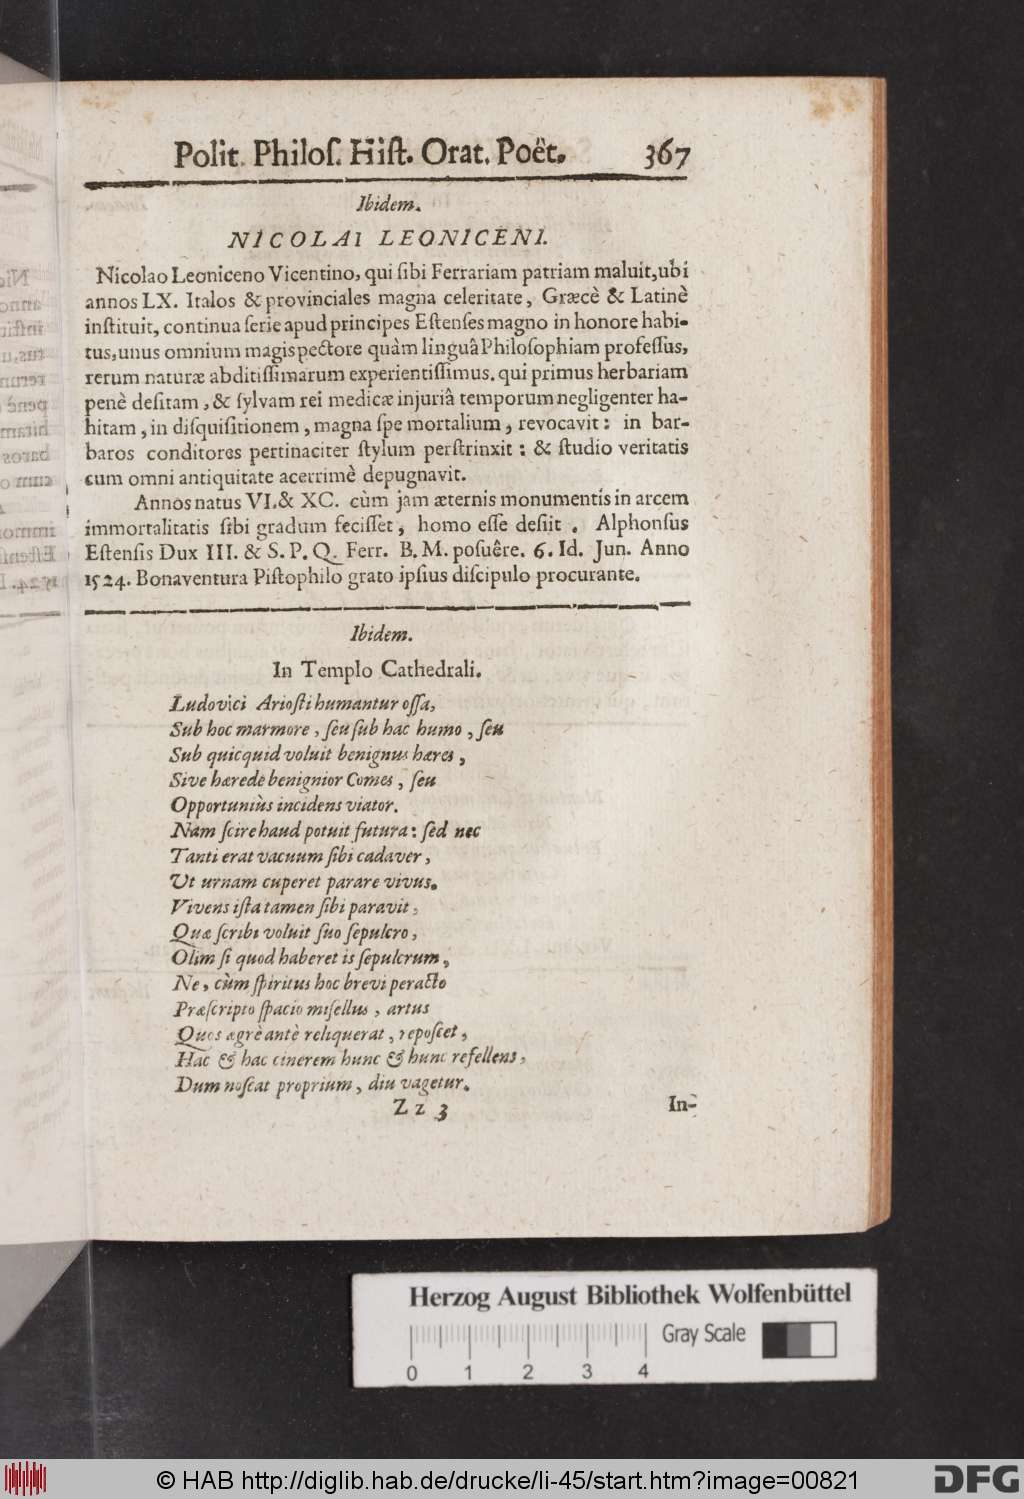 Polit. Philoſ. Hiſt. Orat. Poët. 367
Ibidem.
NICOLAI LEONICENI.
Nicolao Leoniceno Vicentino, qui ſibi Ferrariam patriam maluit, ubi
annos LX. Italos & provinciales magna celeritate, Græcè & Latinè
inſtituit, continua ſerie apud principes Eſtenſes magno in honore habi-
tus, unus omnium magis pectore quàm linguâ Philoſophiam profeſſus,
rerum naturæ abditiſſimarum experientiſſimus. qui primus herbariam
penè deſitam, & ſylvam rei medicæ injuriâ temporum negligenter ha-
hitam, in diſquiſitionem, magna ſpe mortalium, revocavit: in bar-
baros conditores pertinaciter ſtylum perſtrinxit: & ſtudio veritatis
cum omni antiquitate acerrimè depugnavit.
Annos natus VI. & XC. cùm jam æternis monumentis in arcem
immortalitatis ſibi gradum feciſſet, homo eſſe deſiit. Alphonſus
Eſtenſis Dux III. & S. P. Q. Ferr. B. M. poſuêre. 6. Id. Jun. Anno
1524. Bonaventura Piſtophilo grato ipſius diſcipulo procurante.
Ibidem.
In Templo Cathedrali.
Ludovici Arioſti humantur oſſa,
Sub hoc marmore, ſeu ſub hac humo, ſeu
Sub quicquid voluit benignus hæres,
Sive hærede benignior Comes, ſeu
Opportuniùs incidens viator.
Nam ſcire haud potuit futura: ſed nec
Tanti erat vacuum ſibi cadaver,
Ut urnam cuperet parare vivus.
Vivens iſta tamen ſibi paravit,
Quæ ſcribi voluit ſuo ſepulcro,
Olim ſi quod haberet is ſepulcrum,
Ne, cùm ſpiritus hoc brevi peracto
Præſcripto ſpacio miſellus, artus
Quos ægrè antè reliquerat, repoſcet,
Hac & hac cinerem hunc & hunc refellens,
Dum noſcat proprium, diu vagetur.
Zz 3 In-
Herzog August Bibliothek Wolfenbüttel
Gray Scale
0 1 2 3 4
© HAB http://diglib.hab.de/drucke/li-45/start.htm?image=00821
DFG